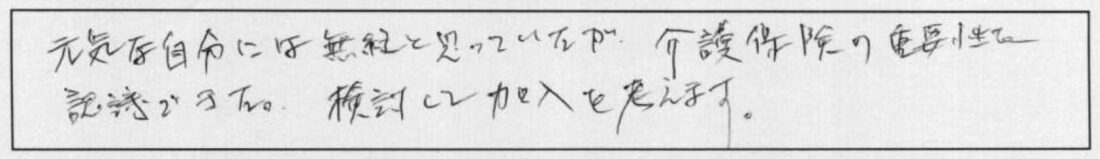 元気な自分には無縁と思っていたが、介護保険の重要性を
認識できた。検討して加入を考えます。